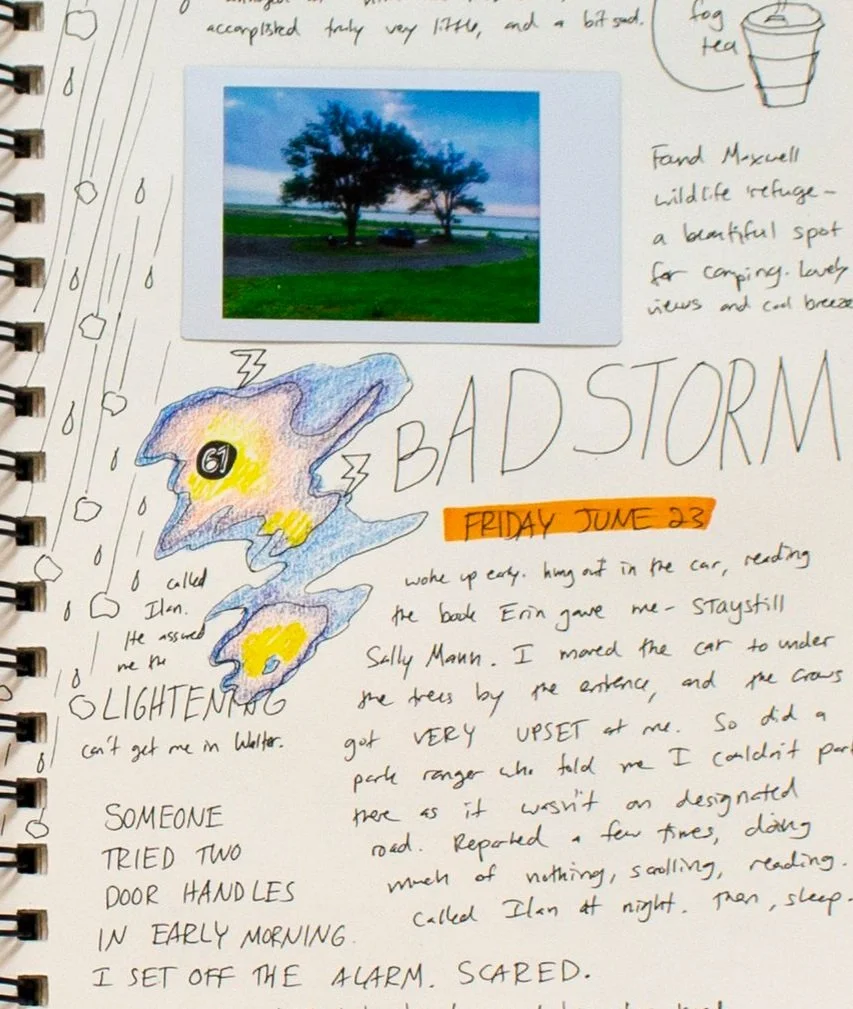 accomplished truly very little, and a bit sad.
fog
tea
Found Maxwell
wildlife refuge –
a beautiful spot
for camping. Lovely
views and cool breeze
BAD STORM
61
FRIDAY JUNE 23
woke up early. hung out in the car, reading
the book Erin gave me – Staystill
Sally Mann. I moved the car to under
the trees by the entrence, and the crows
got VERY UPSET at me. So did a
park ranger who told me I couldn't park
there as it wasn't on designated
road. a few times, doing
much of nothing, scrolling, reading.
Called Ilan at night. Then, sleep.
called
Ilan.
He assured
me the
LIGHTENING
can't get me in Walter.
SOMEONE
TRIED TWO
DOOR HANDLES
IN EARLY MORNING.
I SET OFF THE ALARM. SCARED.